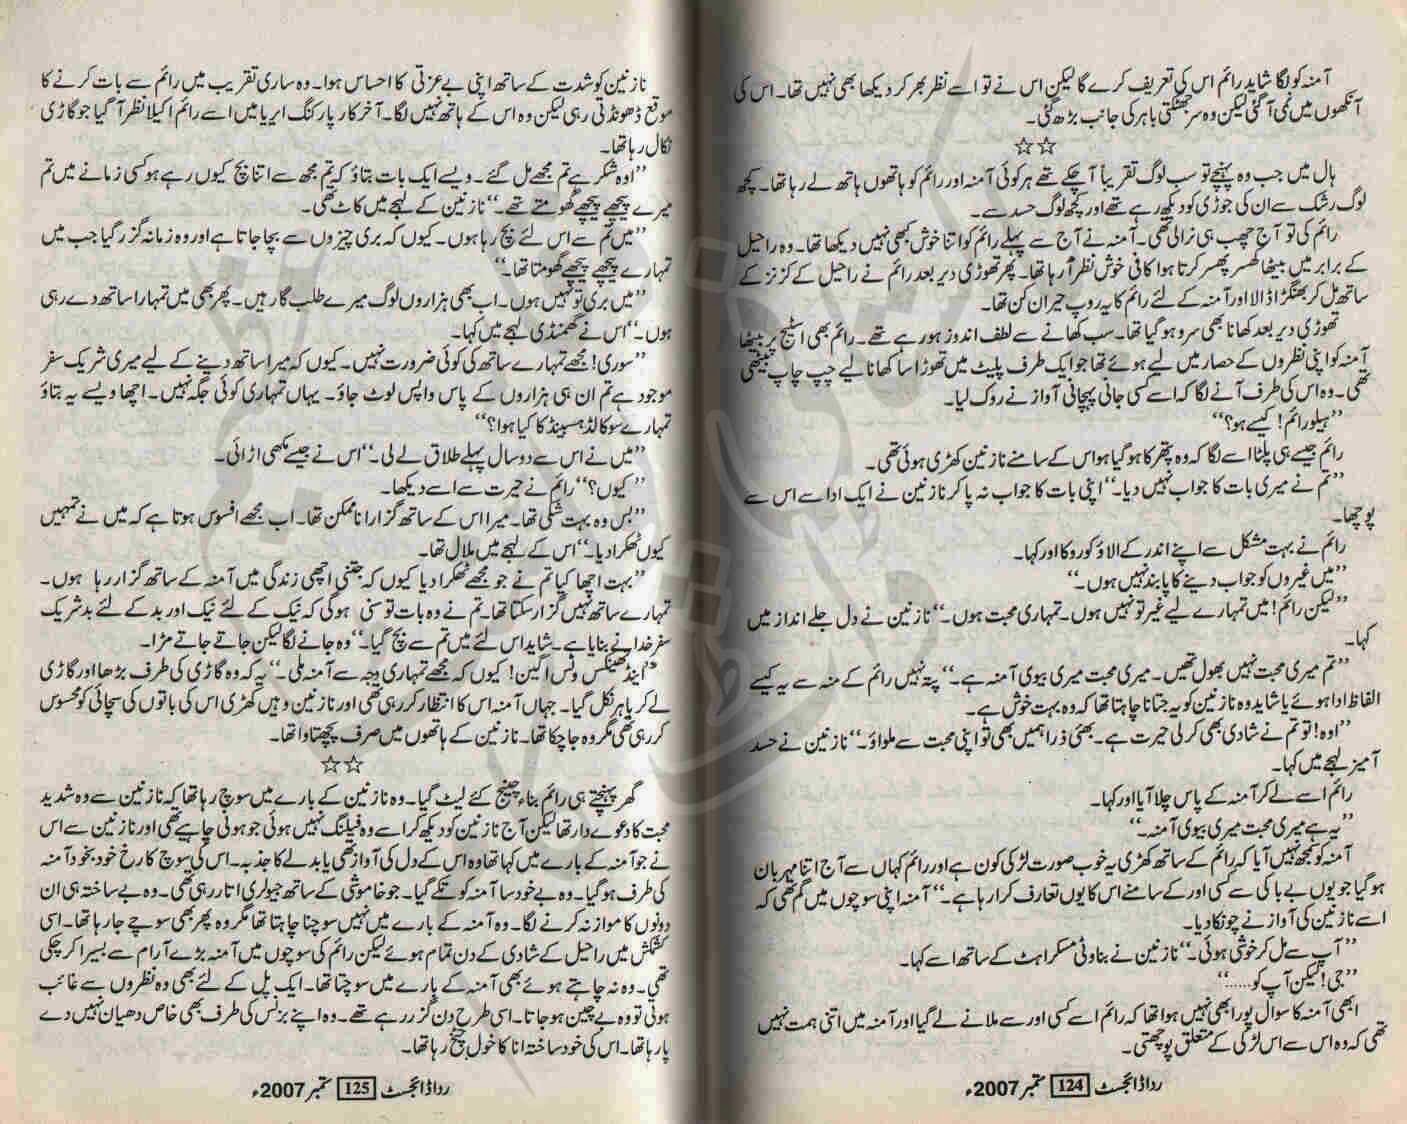 آمنہ کو لگا شاید رائم اس کی تعریف کرے گا لیکن اس نے تو اسے نظر بھر کر دیکھا بھی نہیں تھا۔ اس کی
آنکھوں میں نمی آ گئی لیکن وہ سر جھٹکتی باہر کی جانب بڑھ گئی۔
☆☆
ہال میں جب وہ پہنچے تو سب لوگ تقریباً آ چکے تھے ہر کوئی آمنہ اور رائم کو ہاتھوں ہاتھ لے رہا تھا۔ کچھ
لوگ رشک سے ان کی جوڑی کو دیکھ رہے تھے اور کچھ لوگ حسد سے۔
رائم کی تو آج چھب ہی نرالی تھی۔ آمنہ نے آج سے پہلے رائم کو اتنا خوش بھی نہیں دیکھا تھا۔ وہ راحیل
کے برابر میں بیٹھا کھسر پھسر کرتا ہوا کافی خوش نظر آ رہا تھا۔ پھر تھوڑی دیر بعد رائم نے راحیل کے کزنز کے
ساتھ مل کر بھنگڑا ڈالا اور آمنہ کے لئے رائم کا یہ روپ حیران کن تھا۔
تھوڑی دیر بعد کھانا بھی سرو ہو گیا تھا۔ سب کھانے سے لطف اندوز ہو رہے تھے۔ رائم بھی اسٹیج پر بیٹھا
آمنہ کو اپنی نظروں کے حصار میں لیے ہوئے تھا جو ایک طرف پلیٹ میں تھوڑا سا کھانا لیے چپ چاپ بیٹھی
تھی۔ وہ اس کی طرف آنے لگا کہ اسے کسی جانی پہچانی آواز نے روک لیا۔
”ہیلو رائم! کیسے ہو؟“
رائم جیسے ہی پلٹا اسے لگا کہ وہ پتھر کا ہو گیا ہو اس کے سامنے نازنین کھڑی ہوئی تھی۔
”تم نے میری بات کا جواب نہیں دیا۔“ اپنی بات کا جواب نہ پا کر نازنین نے ایک ادا سے اس سے
پوچھا۔
رائم نے بہت مشکل سے اپنے اندر کے الاؤ کو روکا اور کہا۔
”میں غیروں کو جواب دینے کا پابند نہیں ہوں۔“
”لیکن رائم! میں تمہارے لیے غیر تو نہیں ہوں۔ تمہاری محبت ہوں۔“ نازنین نے دل جلے انداز میں
کہا۔
”تم میری محبت نہیں بھول تھیں۔ میری محبت میری بیوی آمنہ ہے۔“ پتہ نہیں رائم کے منہ سے یہ کیسے
الفاظ ادا ہوئے یا شاید وہ نازنین کو یہ جتانا چاہتا تھا کہ وہ بہت خوش ہے۔
”اوہ! تو تم نے شادی بھی کر لی حیرت ہے۔ بھئی ذرا ہمیں بھی تو اپنی محبت سے ملواؤ۔“ نازنین نے حسد
آمیز لہجے میں کہا۔
رائم اسے لے کر آمنہ کے پاس چلا آیا اور کہا۔
”یہ ہے میری محبت میری بیوی آمنہ۔“
آمنہ کو سمجھ نہیں آیا کہ رائم کے ساتھ کھڑی یہ خوب صورت لڑکی کون ہے اور رائم کہاں سے آج اتنا مہربان
ہو گیا جو یوں بے باکی سے کسی اور کے سامنے اس کا یوں تعارف کرا رہا ہے۔“ آمنہ اپنی سوچوں میں گم تھی کہ
اسے نازنین کی آواز نے چونکا دیا۔
”آپ سے مل کر خوشی ہوئی۔“ نازنین نے بناوٹی مسکراہٹ کے ساتھ اسے کہا۔
”جی! لیکن آپ کو......“
ابھی آمنہ کا سوال پورا بھی نہیں ہوا تھا کہ رائم اسے کسی اور سے ملانے لے گیا اور آمنہ میں اتنی ہمت نہیں
تھی کہ وہ اس سے اس لڑکی کے متعلق پوچھتی۔
ردا ڈائجسٹ 124 ستمبر 2007ء
نازنین کو شدت کے ساتھ اپنی بے عزتی کا احساس ہوا۔ وہ ساری تقریب میں رائم سے بات کرنے کا
موقع ڈھونڈتی رہی لیکن وہ اس کے ہاتھ نہیں لگا۔ آخر کار پارکنگ ایریا میں اسے رائم اکیلا نظر آ گیا جو گاڑی
نکال رہا تھا۔
”اوہ شکر ہے تم مجھے مل گئے۔ ویسے ایک بات بتاؤ کہ تم مجھ سے اتنا بچ کیوں رہے ہو کسی زمانے میں تم
میرے پیچھے پیچھے گھومتے تھے۔“ نازنین کے لہجے میں کاٹ تھی۔
”میں تم سے اس لئے بچ رہا ہوں۔ کیوں کہ بری چیزوں سے بچا جاتا ہے اور وہ زمانہ گزر گیا جب میں
تمہارے پیچھے پیچھے گھومتا تھا۔“
”میں بری تو نہیں ہوں۔ اب بھی ہزاروں لوگ میرے طلب گار ہیں۔ پھر بھی میں تمہارا ساتھ دے رہی
ہوں۔“ اس نے گھمنڈی لہجے میں کہا۔
”سوری! مجھے تمہارے ساتھ کی کوئی ضرورت نہیں۔ کیوں کہ میرا ساتھ دینے کے لیے میری شریک سفر
موجود ہے تم ان ہی ہزاروں کے پاس واپس لوٹ جاؤ۔ یہاں تمہاری کوئی جگہ نہیں۔ اچھا ویسے یہ بتاؤ
تمہارے سو کالڈ ہسبینڈ کا کیا ہوا؟“
”میں نے اس سے دو سال پہلے طلاق لے لی۔“ اس نے جیسے مکھی اڑائی۔
”کیوں؟“ رائم نے حیرت سے اسے دیکھا۔
”بس وہ بہت شکی تھا۔ میرا اس کے ساتھ گزارا ناممکن تھا۔ اب مجھے افسوس ہوتا ہے کہ میں نے تمہیں
کیوں ٹھکرا دیا۔“ اس کے لہجے میں ملال تھا۔
”بہت اچھا کیا تم نے جو مجھے ٹھکرا دیا کیوں کہ جتنی اچھی زندگی میں آمنہ کے ساتھ گزار رہا ہوں۔
تمہارے ساتھ نہیں گزار سکتا تھا۔ تم نے وہ بات تو سنی ہو گی کہ نیک کے لئے نیک اور بد کے لئے بد شریک
سفر خدا نے بنایا ہے۔ شاید اس لئے میں تم سے بچ گیا۔“ وہ جانے لگا لیکن جاتے جاتے مڑا۔
”اینڈ تھینکس ونس اگین! کیوں کہ مجھے تمہاری وجہ سے آمنہ ملی۔“ یہ کہہ وہ گاڑی کی طرف بڑھا اور گاڑی
لے کر باہر نکل گیا۔ جہاں آمنہ اس کا انتظار کر رہی تھی اور نازنین وہیں کھڑی اس کی باتوں کی سچائی کو محسوس
کر رہی تھی مگر وہ جا چکا تھا۔ نازنین کے ہاتھوں میں صرف پچھتاوا تھا۔
☆☆
گھر پہنچتے ہی رائم بناء چینج کئے لیٹ گیا۔ وہ نازنین کے بارے میں سوچ رہا تھا کہ نازنین سے وہ شدید
محبت کا دعوے دار تھا لیکن آج نازنین کو دیکھ کر اسے وہ فیلنگ نہیں ہوئی جو ہونی چاہیے تھی اور نازنین سے اس
نے جو آمنہ کے بارے میں کہا تھا وہ اس کے دل کی آواز تھی یا بدلے کا جذبہ۔ اس کی سوچ کا رخ خود بخود آمنہ
کی طرف ہو گیا۔ وہ بے خود سا آمنہ کو تکے گیا۔ جو خاموشی کے ساتھ جیولری اتار رہی تھی۔ وہ بے ساختہ ہی ان
دونوں کا موازنہ کرنے لگا۔ وہ آمنہ کے بارے میں نہیں سوچنا چاہتا تھا مگر وہ پھر بھی سوچے جا رہا تھا۔ اسی
کشمکش میں راحیل کے شادی کے دن تمام ہوئے لیکن رائم کی سوچوں میں آمنہ بڑے آرام سے بسیرا کر چکی
تھی۔ وہ نہ چاہتے ہوئے بھی آمنہ کے بارے میں سوچتا تھا۔ ایک پل کے لئے بھی وہ نظروں سے غائب
ہوتی تو وہ بے چین ہو جاتا۔ اسی طرح دن گزر رہے تھے۔ وہ اپنے بزنس کی طرف بھی خاص دھیان نہیں دے
پا رہا تھا۔ اس کی خود ساختہ انا کا خول چٹخ رہا تھا۔
ردا ڈائجسٹ 125 ستمبر 2007ء